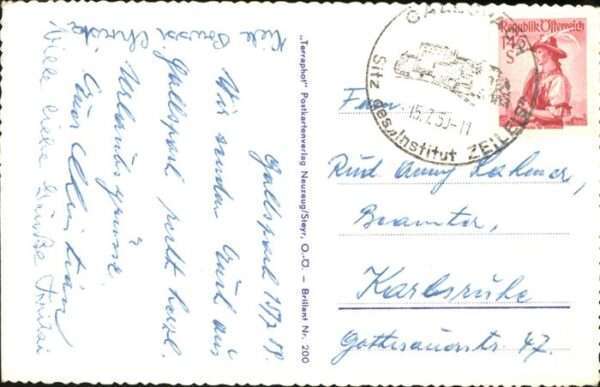 Gallspach 15/7 59.
Wir senden Euch aus
Gallspach recht herzl.
Urlaubsgrüsse.
Euer Christian
Viele liebe Grüße
Viele Grüsse Christa
„Terraphot" Postkartenverlag Neuzeug/Steyr, O.-Ö. – Brillant Nr. 200
GALLSPACH
Sitz des Institut ZEILEIS
15.7.59-11
Republik Österreich
1.45
S
Fam.
Rud. Anny
Beamter,
Karlsruhe
Gottesauerstr. 47.